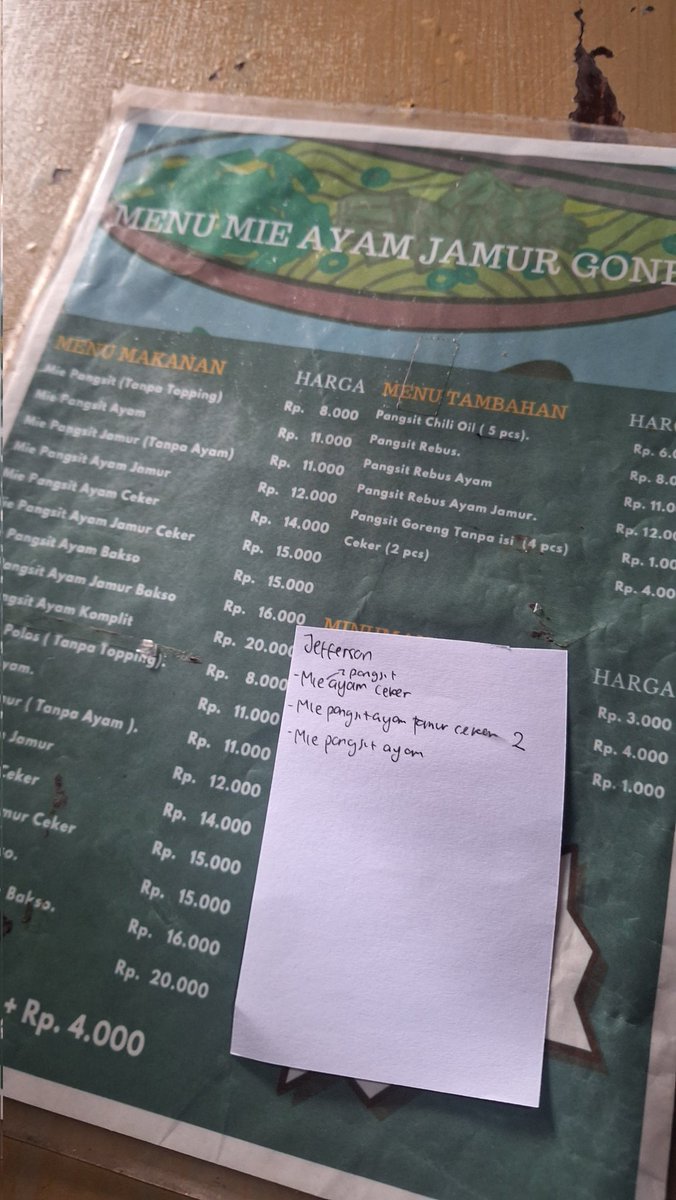 MENU MIE AYAM JAMUR
MENU MAKANAN
HARGA
Mie Pangsit (Tanpa Topping)
Rp. 8.000
Mie Pangsit Ayam
Rp. 11.000
Mie Pangsit Jamur (Tanpa Ayam)
Rp. 11.000
Mie Pangsit Ayam Jamur
Rp. 12.000
Mie Pangsit Ayam Ceker
Rp. 14.000
Pangsit Ayam Jamur Ceker
Rp. 15.000
Pangsit Ayam Bakso
Rp. 15.000
Pangsit Ayam Jamur Bakso
Rp. 16.000
Ayam Komplit
Rp. 20.000
Polos (Tanpa Topping).
Rp. 8.000
Rp. 11.000
(Tanpa Ayam).
Rp. 11.000
Jamur
Rp. 12.000
Ceker
Rp. 14.000
Ceker
Rp. 15.000
Rp. 15.000
Bakso.
Rp. 16.000
Rp. 20.000
+ Rp. 4.000
MENU TAMBAHAN
Pangsit Chili Oil ( 5 pcs).
Pangsit Rebus.
Pangsit Rebus Ayam
Pangsit Rebus Ayam Jamur.
Pangsit Goreng Tanpa isi (4 pcs)
Ceker (2 pcs)
HARGA
Rp. 3.000
Rp. 4.000
Rp. 1.000
Jefferson
pangsit
- Mie ayam ceker
- Mie pangsit ayam jamur ceker 2
- Mie pangsit ayam